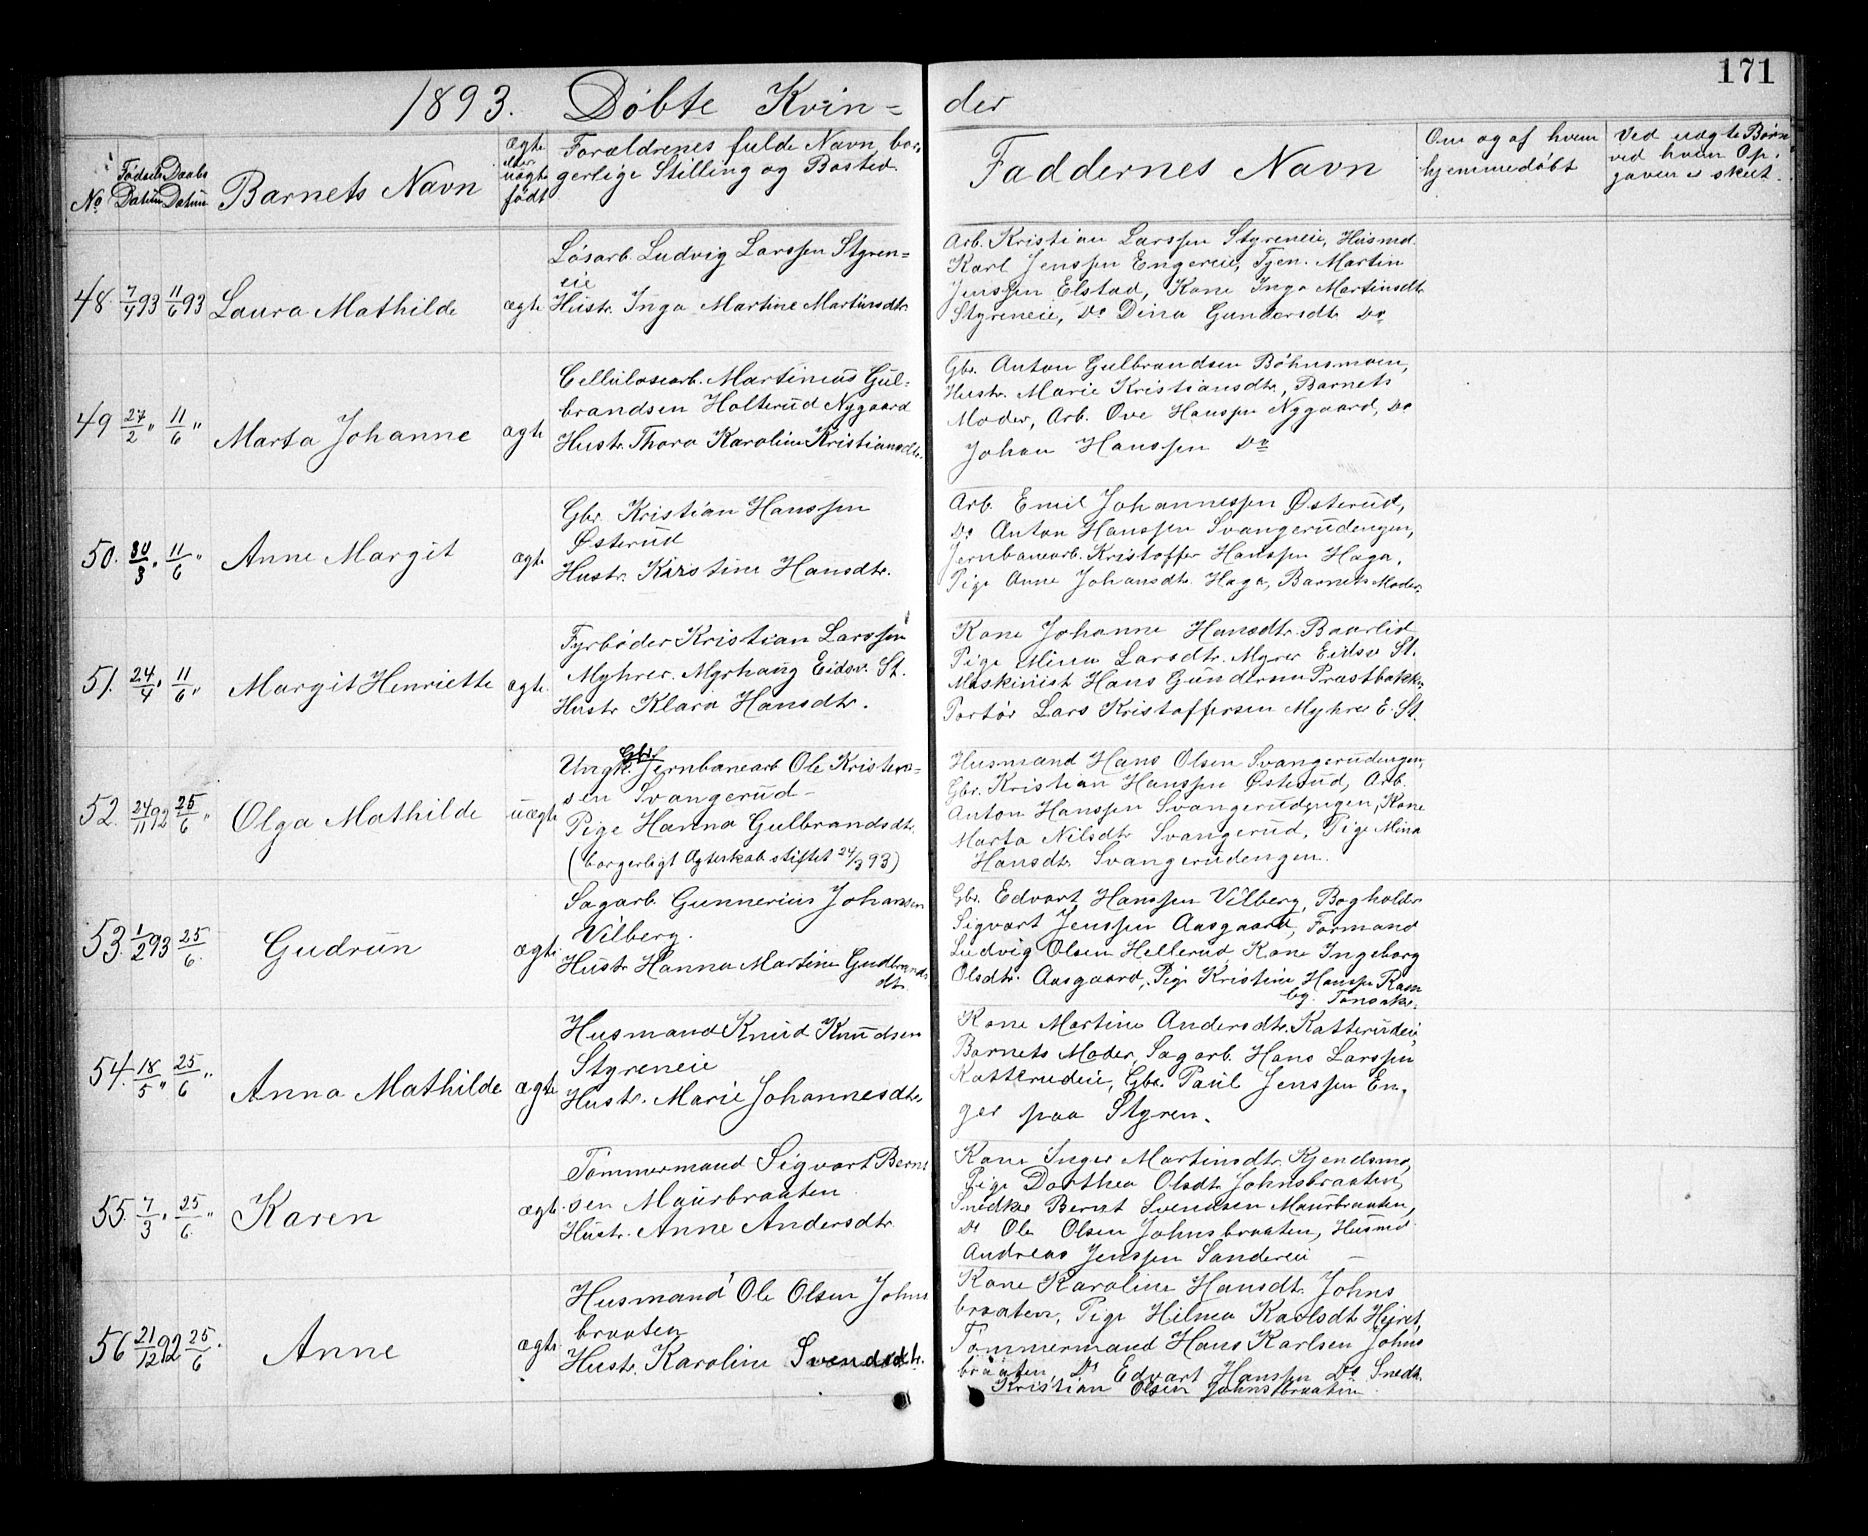 171
1893. Døbte Kvin=
der
No
Fødsels Datum
Daabs Datum
Barnets Navn
ægte eller uægte født
Forældrenes fulde Navn, bor-
gerlige Stilling og Bosted.
Faddernes Navn
Om og af hvem
hjemmedøbt
Ved uægte Børn
ved hvem Op-
gaven er skeet.
48 7/4 93 11/6 93 Laura Mathilde ægte
Løsarb. Ludvig Larssen Styren=
eie
Hustr. Inga Martine Martinsdtr.
Arb. Kristian Larssen Styreneie, Husmd.
Karl Jenssen Engereie, Tjen. Martin
Jenssen Elstad, Kone Inga Martinsdtr
Styreneie, Do Dina Gundersdtr Do
49 27/2 " 11/6 " Marta Johanne ægte
Cellulosearb. Martinius Gul-
brandsen Holterud Nygaard
Hustr. Thora Karoline Kristiansdtr.
Gbr. Anton Gulbrandsen Bøhnsmoen,
Hustr. Marie Kristiansdtr., Barnets
Moder, Arb. Ove Hanssen Nygaard, Do
Johan Hanssen Do
50. 30/3 " 11/6 " Anne Margit ægte
Gbr. Kristian Hanssen
Østerud
Hustr. Kirstine Hansdtr.
Arb. Emil Johannessen Østerud,
Do Anton Hanssen Svangerudengen,
Jernbanearb. Kristoffer Hanssen Haga,
Pige Anne Johansdtr. Haga, Barnets Moder.
51. 24/4 " 11/6 " Margit Henriette ægte.
Fyrbøder Kristian Larssen
Myhrer. Myrhaug Eidsv. St.
Hustr Klara Hansdtr.
Kone Johanne Hansdtr. Baarlid
Pige Mina Larsdtr. Myrer Eidsv St.
Maskinist Hans Gundersen Præstbakke,
Portør Lars Kristoffersen Myhrer E. St.
52. 24/11 92 25/6 " Olga Mathilde uægte
Gbr.
Ungk. Jernbanearb Ole Kristens-
sen Svangerud-
Pige Hanna Gulbrandsdtr.
(borgerligt Ægteskab stiftet 24/3 93)
Husmand Hans Olsen Svangerudengen,
Gbr. Kristian Hanssen Østerud, Arb.
Anton Hanssen Svangerudengen, Kone
Marta Nilsdtr Svangerud, Pige Mina
Hansdtr. Svangerudengen.
53. 1/2 93 25/6. Gudrun ægte
Sagarb. Gunnerius Johansen
Vilberg.
Hustr. Hanna Martine Gudbrands
dtr.
Gbr. Edvart Hanssen Vilberg, Bogholder
Sigvart Jenssen Aasgaard, Formand
Ludvig Olsen Hellerud, Kone Ingeborg
Olsdtr. Aasgaard, Pige Kristine Hanssen Ram
bg. Tonsaker.
54. 18/5 " 25/6 " Anna Mathilde ægte
Husmand Knud Knudsen
Styreneie
Hustr. Marie Johannesdtr.
Kone Martine Andersdtr. Katterudeie,
Barnets Moder, Sagarb. Hans Larssen
Katterudeie, Gbr. Paul Jenssen En-
ger paa Styren.
55. 7/3 " 25/6. " Karen ægte.
Tømmermand Sigvart Bernt
sen Maurbraaten
Hustr. Anne Andersdtr.
Kone Inger Martinsdtr. Kjendsmo,
Pige Dorthea Olsdtr. Johnsbraaten,
Snedker Bernt Svendsen Maurbraaten,
Do Ole Olsen Johnsbraaten, Husmd
Andreas Jenssen Sandereie
56 21/12 92 25/6. Anne ægte
Husmand Ole Olsen Johns
braaten
Hustr. Karoline Svendsdtr.
Kone Karoline Hansdtr. Johns
braaten, Pige Hilma Karlsdtr
Tømmermand Hans Karlsen Johns
braaten, Do Edvart Hanssen Do Snedk.
Kristian Olsen Johnsbraaten.